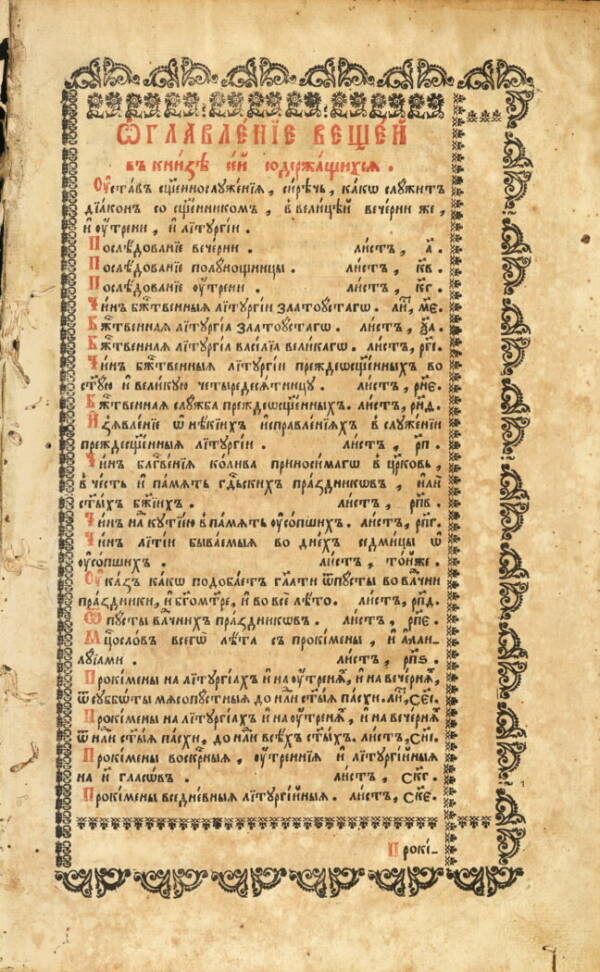 Ѡ҆ГЛАВЛЕ́НЇЕ ВЕЩЕ́Й
въ кни́зѣ се́й содержа́щихсѧ .
Оу҆ста́въ сщ҃еннослꙋже́нїѧ , си́рѣчь , ка́кѡ слꙋ́житъ
дїа́конъ со сщ҃е́нникомъ , в̾ вели́цѣй вече́рни же ,
и҆ оу҆́трени , и҆ лїтꙋргі́и .
Послѣ́дованїе вече́рни . ли́стъ , а҃ .
Послѣ́дованїе полꙋ́нощницы . ли́стъ , к҃в .
Послѣ́дованїе оу҆́трени . ли́стъ , к҃г .
Чи́нъ бж҃е́ственныѧ лїтꙋргі́и златоꙋ́стагѡ . ли́ , м҃є .
Бж҃е́ственнаѧ лїтꙋргі́а златоꙋ́стагѡ . ли́стъ , ч҃а .
Бж҃е́ственнаѧ лїтꙋргі́а васі́лїа вели́кагѡ . ли́стъ , рг҃і .
Чи́нъ бж҃е́ственныѧ лїтꙋргі́и преждеѡсщ҃е́нныхъ во
ст҃ꙋ́ю и҆ вели́кꙋю четыредесѧ́тницꙋ . ли́стъ , рн҃є .
Бж҃е́ственнаѧ слꙋ́жба преждеѡсщ҃е́нныхъ . ли́стъ , рн҃д .
И҆з̾ѧвле́нїе ѡ҆ нѣ́кїихъ и҆справле́нїѧхъ в̾ слꙋже́нїи
преждесщ҃е́нныѧ лїтꙋргі́и . ли́стъ , р҃п .
Чи́нъ блг҃ве́нїѧ ко́лива приноси́магѡ в̾ цр҃ковь ,
в̾ че́сть и҆ па́мѧть гдⷭ҇ьскихъ пра́здникѡвъ , и҆лѝ
ст҃ы́хъ бж҃їихъ . ли́стъ , рп҃в .
Чи́нъ на кꙋтїю̀ в̾ па́мѧть оу҆со́пшихъ . ли́стъ , рп҃г .
Чи́нъ лїті́и быва́емыѧ во дне́хъ седми́цы ѡ҆
оу҆со́пшихъ . ли́стъ , то́йже .
Оу҆ка́зъ ка́кѡ подоба́етъ гл҃ати ѿпꙋ́сты во влⷣчни
пра́здники , и҆ бг҃ома́тре , и҆ во всѐ лѣ́то . ли́стъ , рп҃д .
Ѿпꙋ́сты влⷣчнихъ пра́здникѡвъ . ли́стъ , рп҃є .
Мцⷭ҇осло́въ всегѡ̀ лѣ́та съ прокі́мены , и҆ а҆лли-
лꙋ́їами . ли́стъ , рп҃ѕ .
Прокі́мены на лїтꙋргі́ахъ и҆ на оу҆́тренѧ , и҆ на вече́рнѧ ,
ѿ сꙋббѡ́ты мѧсопꙋ́стныѧ до нлⷣи ст҃ы́ѧ па́схи . ли́ , сє҃і .
Прокі́мены на лїтꙋргі́ахъ и҆ на оу҆́тренѧ , и҆ на вече́рнѧ
ѿ нлⷣи ст҃ы́ѧ па́схи , до нлⷣи всѣ́хъ ст҃ы́хъ . ли́стъ , си҃і .
Прокі́мены воскрⷭ҇ныѧ , оу҆́треннїѧ и҆ лїтꙋргі́йныѧ
на и҃ гла́сѡвъ . ли́стъ , ск҃г .
Прокі́мены вседне́вныѧ лїтꙋргі́йныѧ . ли́стъ , ск҃є .
Прокі-